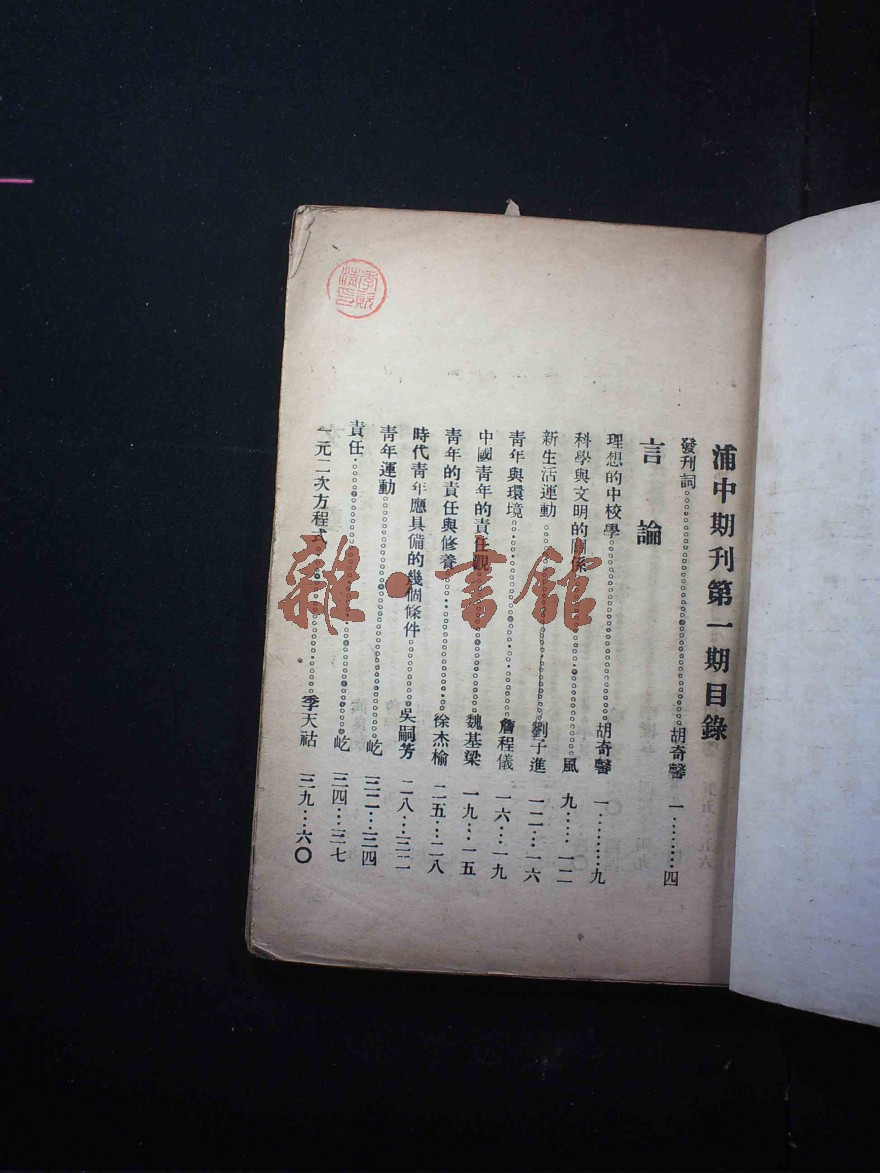 浦中期刊第一期目錄
發刊詞 胡奇馨 一………四
言論
理想的中校學 胡奇馨 一………九
科學與文明的關係 風 九……一二
新生活運動 劉子進 一二…一六
青年與環境 詹程儀 一六…一九
中國青年的責任觀 魏基梁 一九…一五
青年的責任與修養 徐杰榆 二五…二八
時代青年應具備的幾個條件 吳嗣芳 二八…三二
青年運動 屹 三二…三四
責任 屹 三四…三七
一元二次方程式 季天祜 三九…六〇
雜·書館